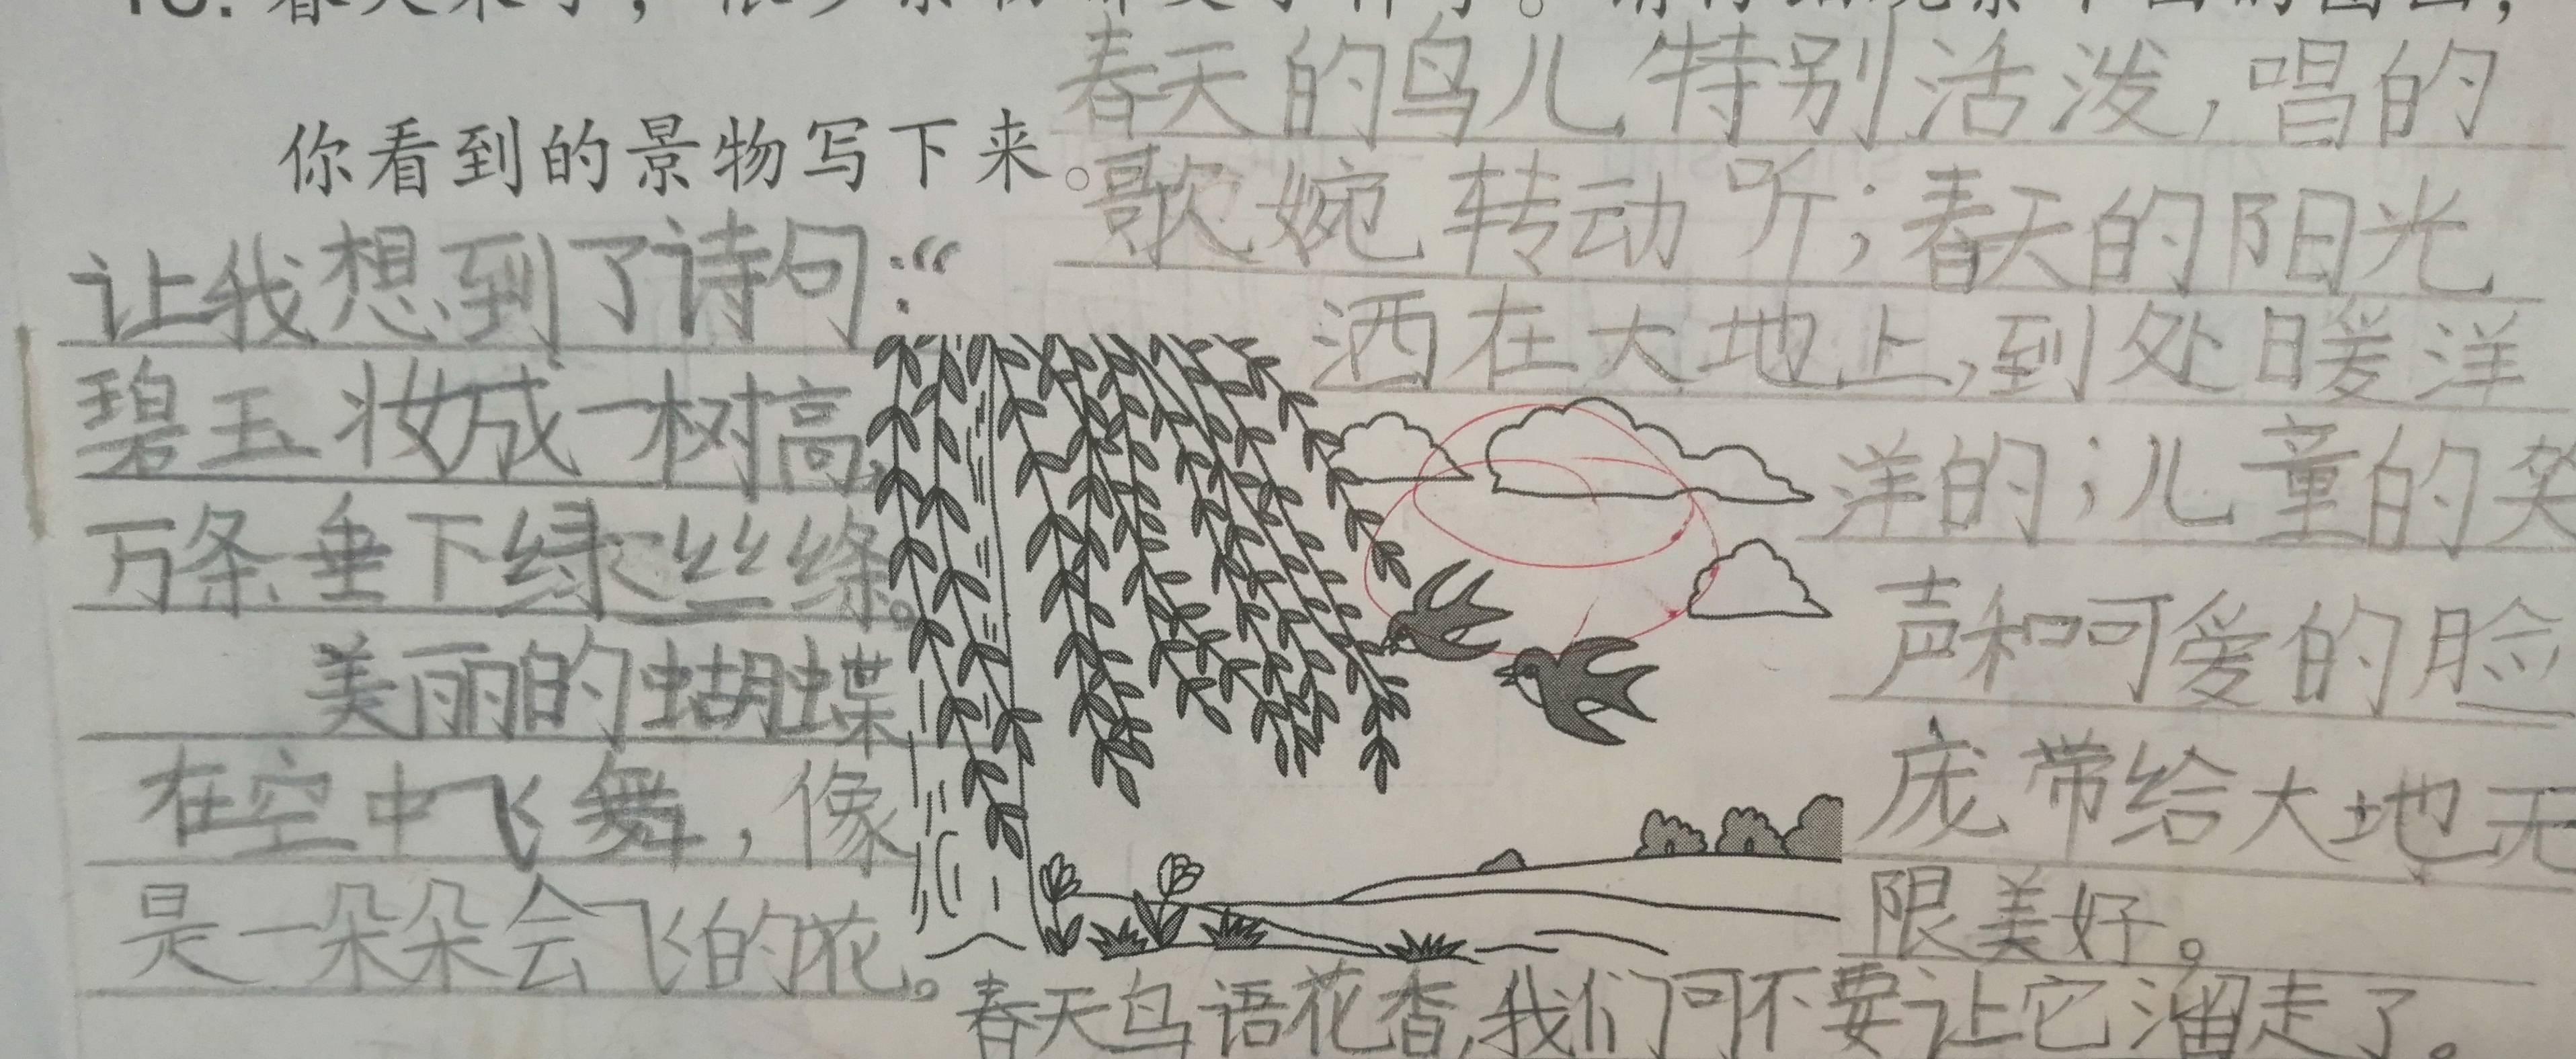 你看到的景物写下来。
让我想到了诗句：“
碧玉妆成一树高，
万条垂下绿丝绦。
美丽的蝴蝶
在空中飞舞，像
是一朵朵会飞的花。
春天的鸟儿特别活泼，唱的
歌婉转动听；春天的阳光
洒在大地上，到处暖洋
洋的；儿童的笑
声和可爱的脸
庞带给大地无
限美好。
春天鸟语花香，我们可不要让它溜走了。